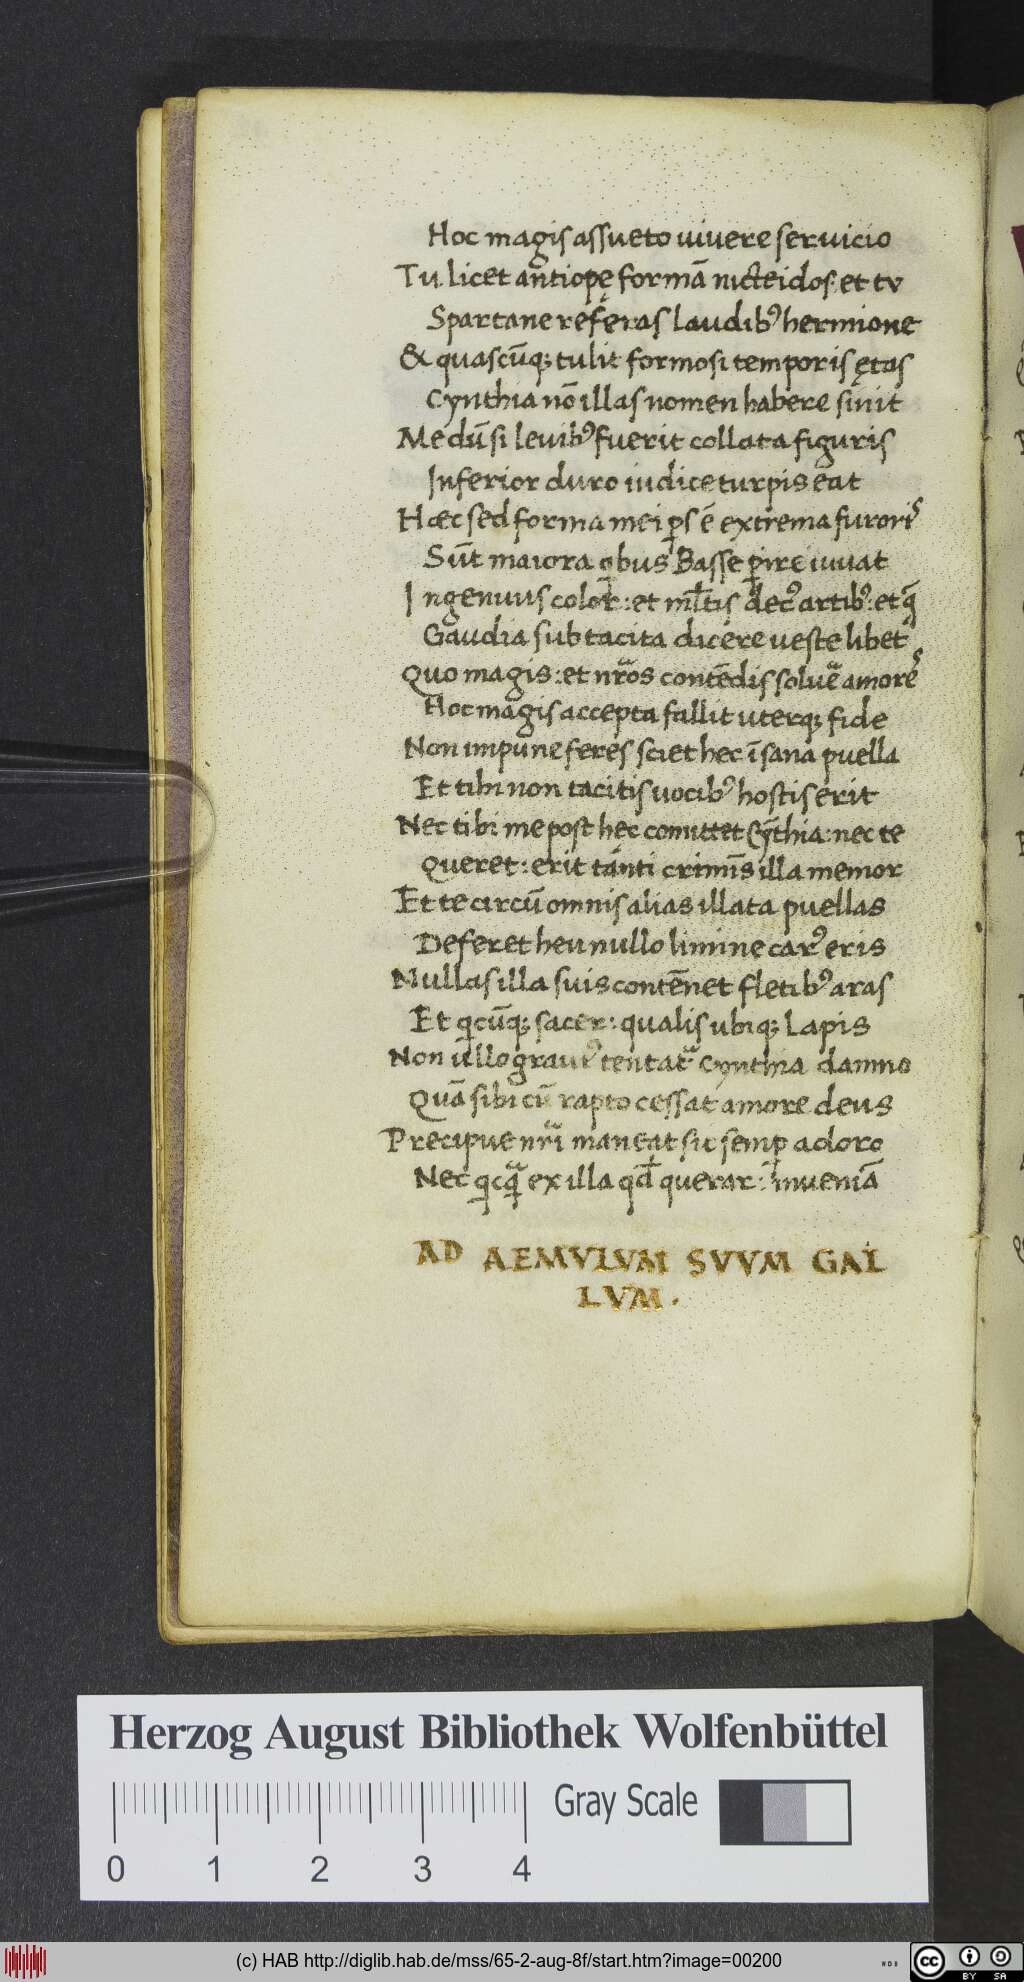 Hoc magis assueto uiuere seruicio
Tu licet antiopę formā nicteidos: et tv
Spartane refęras laudibꝰ hermione
& quascūqꝫ tulit formosi temporis ętas
Cynthia nō illas nomen habere sinit
Medū si leuibꝰ fuerit collata figuris
Inferior duro iudice turpis eat
Hæc sed forma mei ꝑs ē extrema furoris
Sūt maiora qbus Basse ꝑire iuuat
Ingenuus color: et ml̄tis decꝰ artibꝰ: et q̄
Gaudia sub tacita dicere ueste libet
Quo magis: et nr̄os contēdis soluẽ amorēs
Hoc magis accepta fallit uterqꝫ fide
Non impune feres sciet hec īsana puella
Et tibi non tacitis uocibꝰ hostis erit
Nec tibi me post hec comittet Cȳthia: nec te
Queret: erit tanti crimīs illa memor
Et te circū omnis alias illata puellas
Deferet heu nullo limine carꝰ eris
Nullas illa suis contēnet fletibꝰ aras
Et qcūqꝫ sacer: qualis ubiqꝫ Lapis
Non ullo grauiꝰ tentat᷑ Cynthia damno
Quā sibi cū rapto cessat amore deus
Precipue nr̄i maneat sic semꝑ adoro
Nec qcq̄ ex illa qd̄ querar: inueniā
AD AEMVLVM SVVM GAL
LVM.
Herzog August Bibliothek Wolfenbüttel
Gray Scale
0 1 2 3 4
(c) HAB http://diglib.hab.de/mss/65-2-aug-8f/start.htm?image=00200
cc BY SA